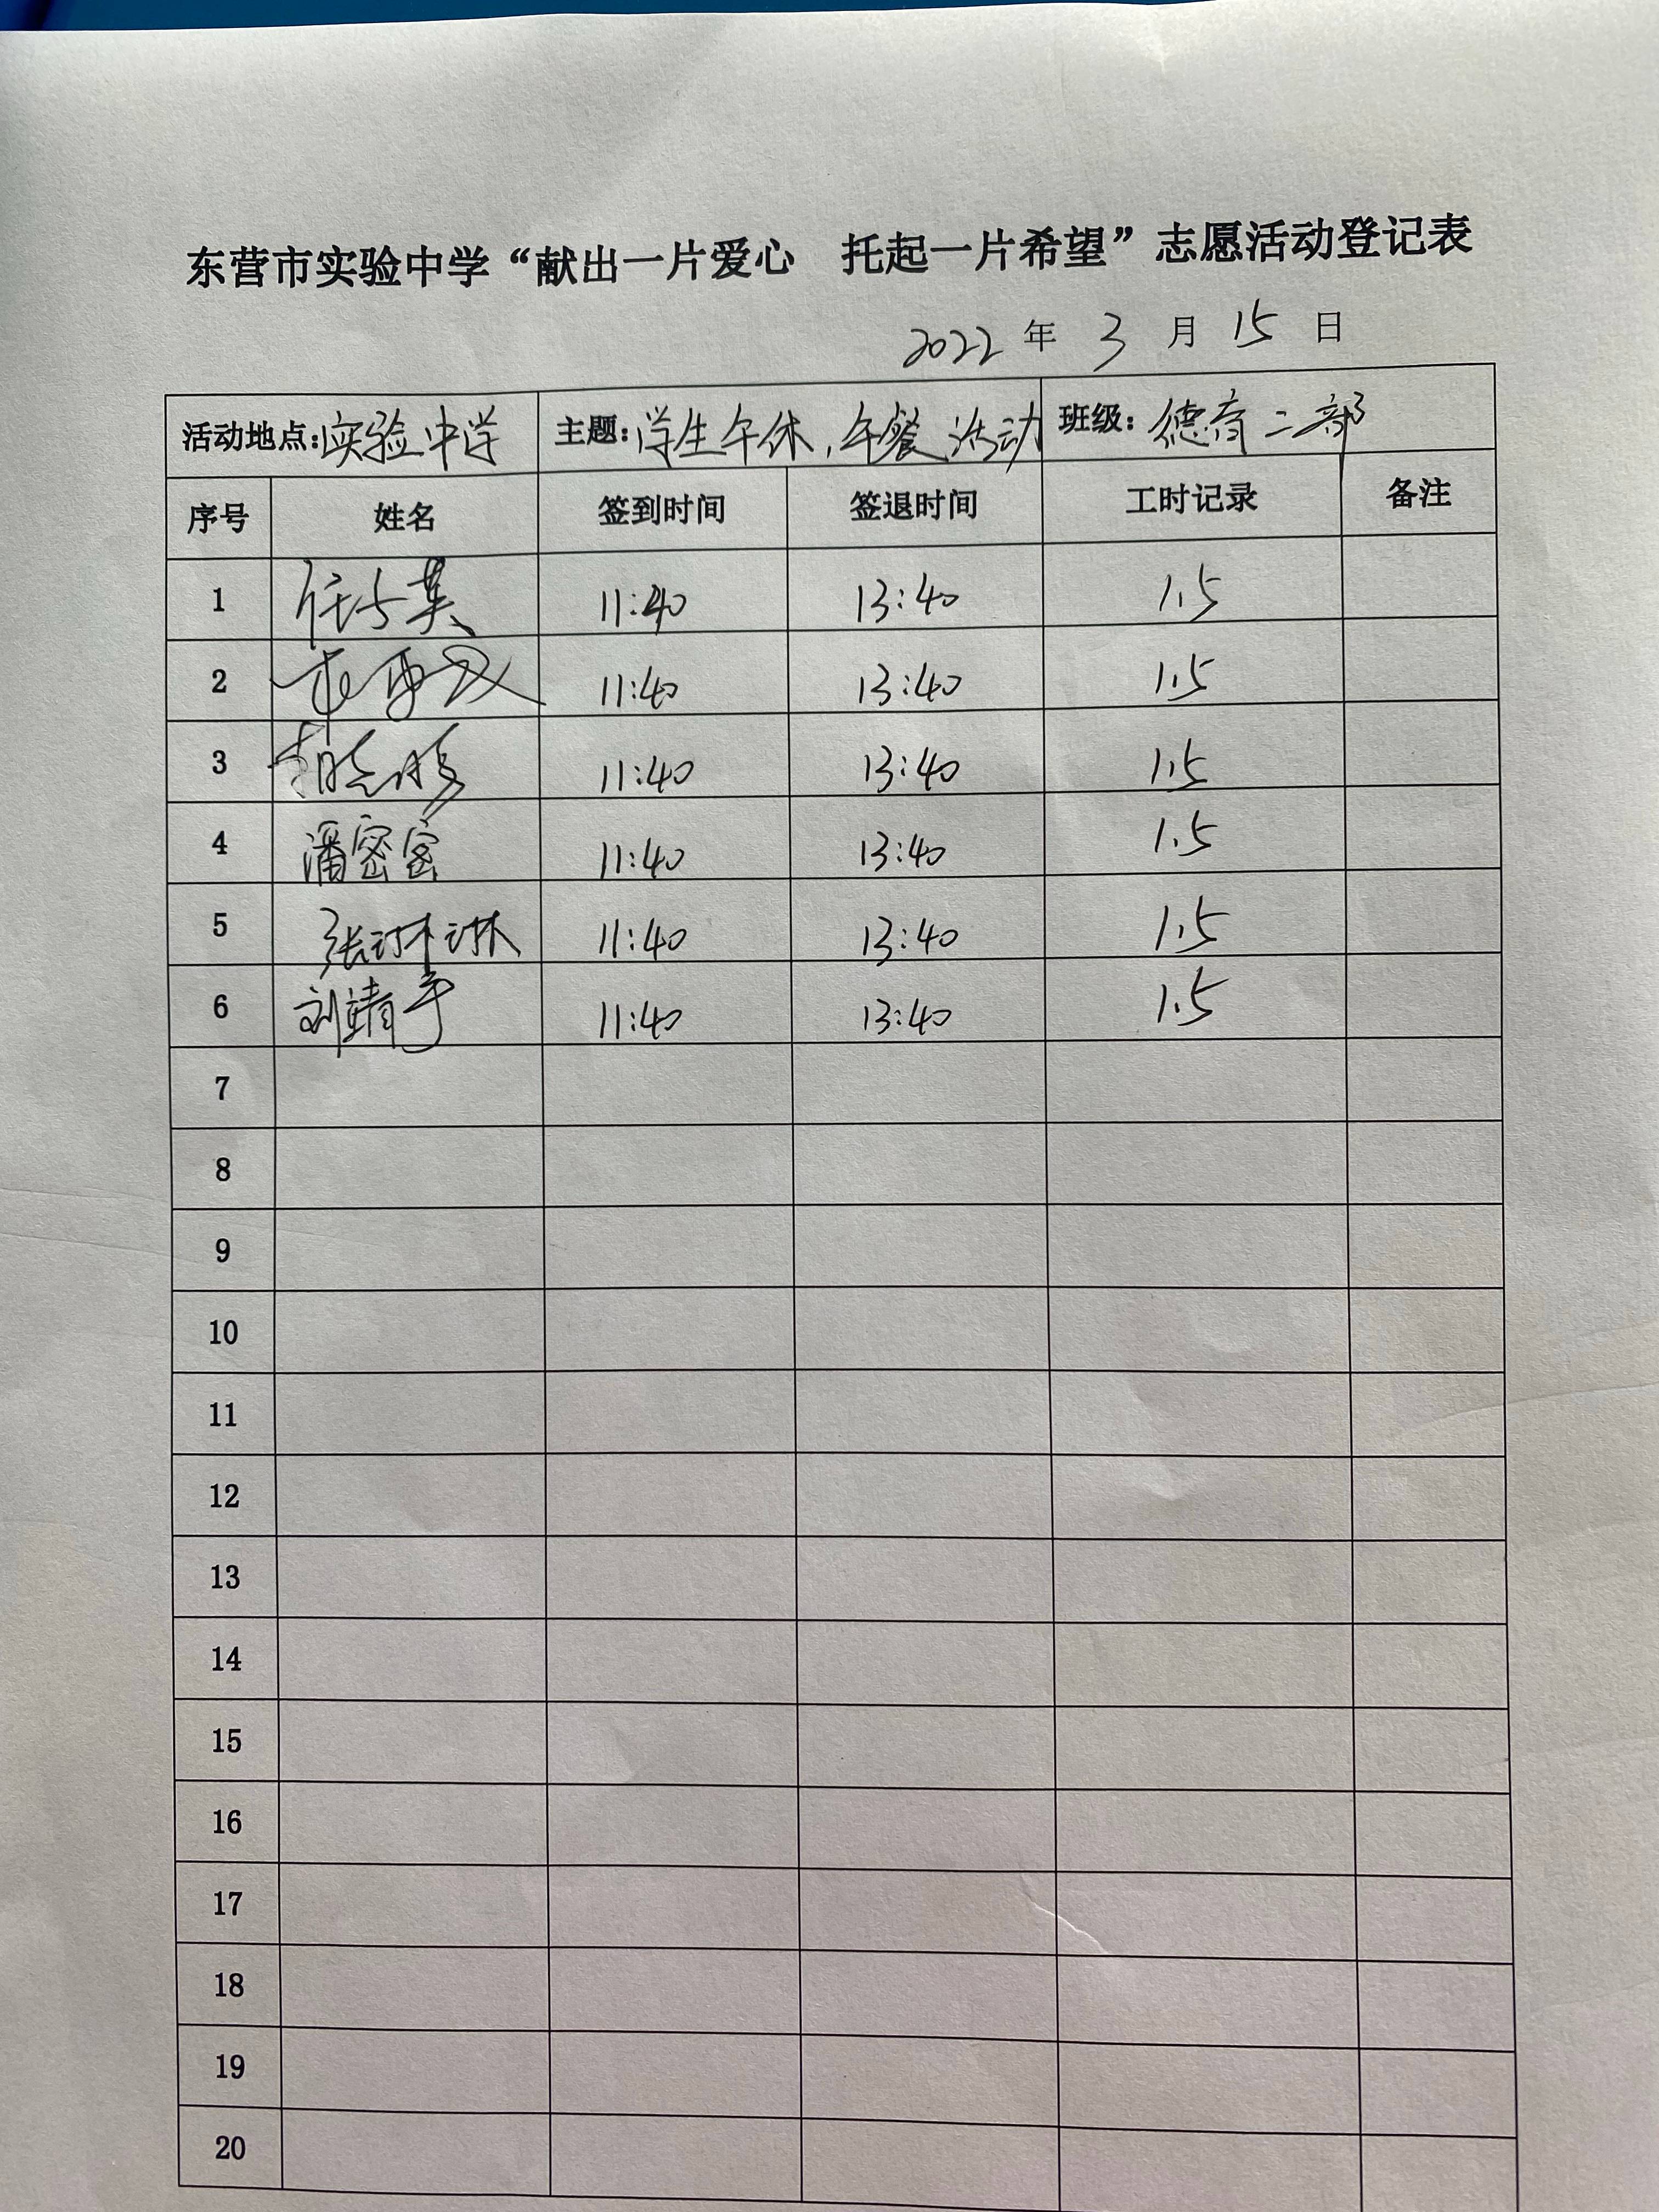 东营市实验中学“献出一片爱心 托起一片希望”志愿活动登记表
2022 年 3 月 15 日
活动地点:实验中学 主题:学生午休,午餐活动 班级:德育二部
序号 姓名 签到时间 签退时间 工时记录 备注
1 11:40 13:40 1.5
2 11:40 13:40 1.5
3 11:40 13:40 1.5
4 潘密密 11:40 13:40 1.5
5 张琳琳 11:40 13:40 1.5
6 刘靖宇 11:40 13:40 1.5
7
8
9
10
11
12
13
14
15
16
17
18
19
20